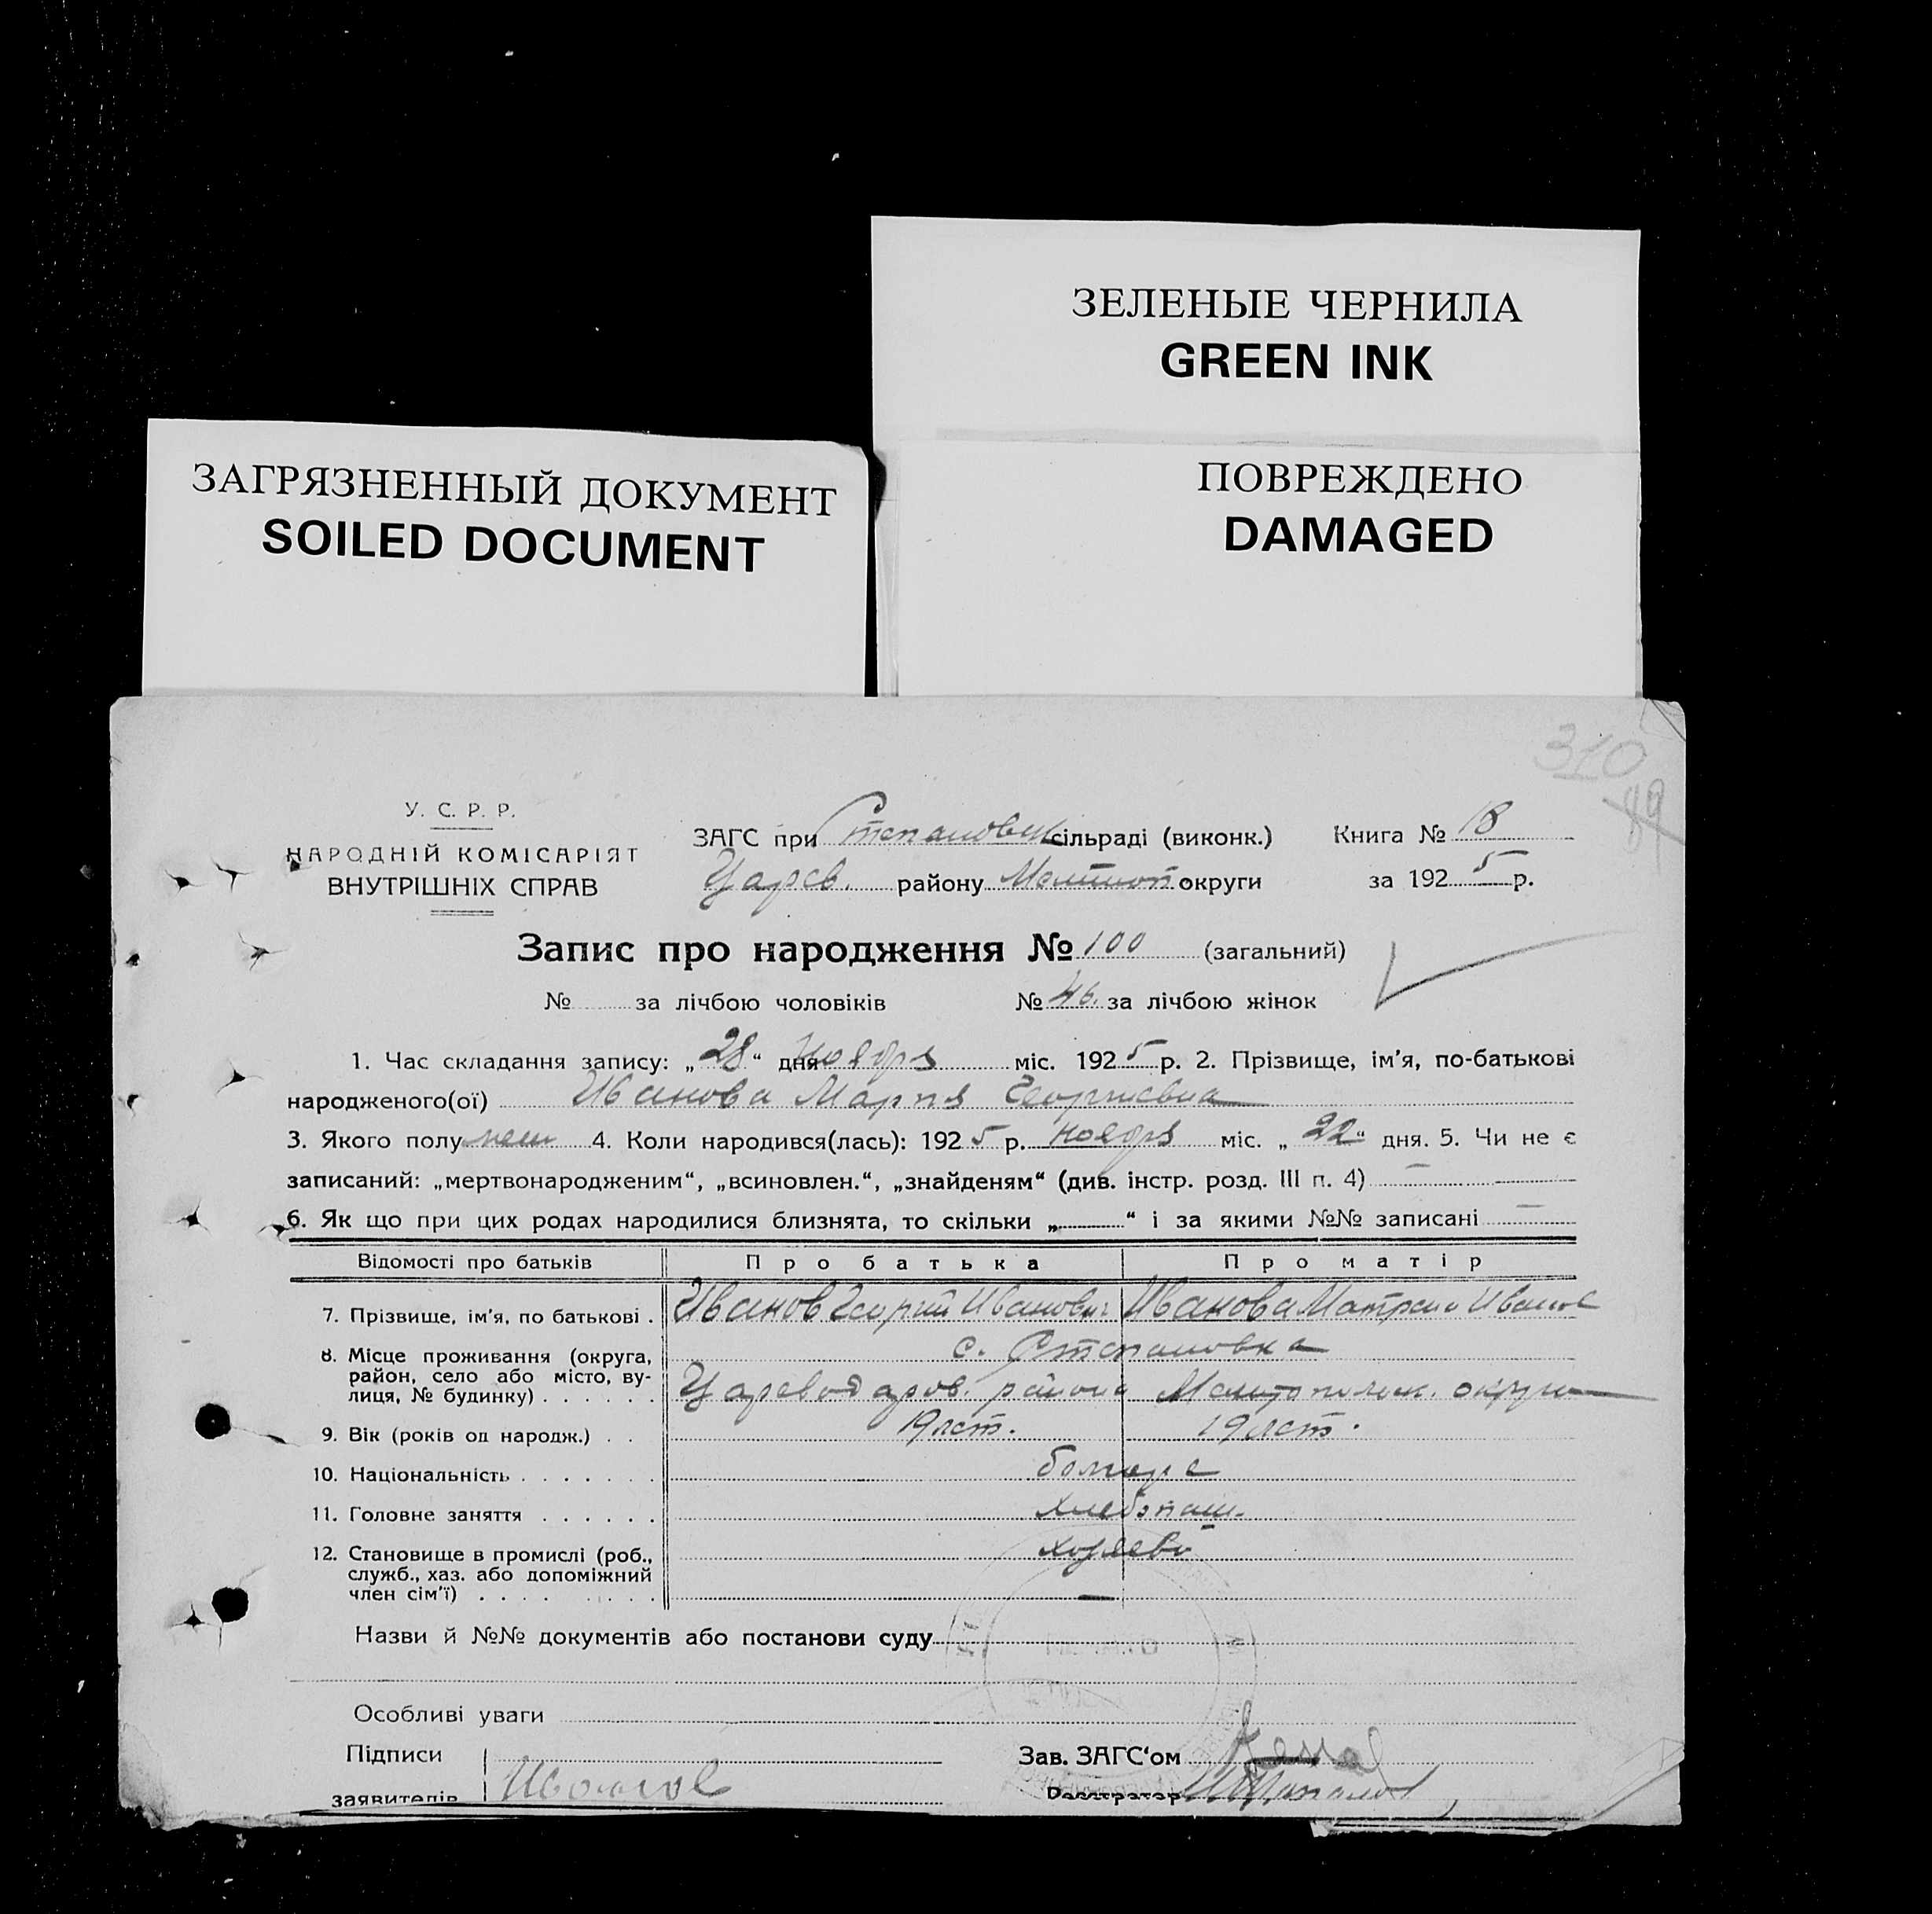 ЗЕЛЕНЫЕ ЧЕРНИЛА
GREEN INK
ЗАГРЯЗНЕННЫЙ ДОКУМЕНТ
SOILED DOCUMENT
ПОВРЕЖДЕНО
DAMAGED
310
89
У. С. Р. Р.
НАРОДНІЙ КОМІСАРІЯТ
ВНУТРІШНІХ СПРАВ
ЗАГС при Степановск сільраді (виконк.) Книга № 18
Царев. району Мелитоп округи за 1925 р.
Запис про народження № 100 (загальний)
№ за лічбою чоловіків № 46. за лічбою жінок
1. Час складання запису: „28“ дня ноября міс. 1925 р. 2. Прізвище, ім’я, по-батькові
народженого(ої) Иванова Мария Георгиевна
3. Якого полу жен 4. Коли народився(лась): 1925 р. ноября міс. „22“ дня. 5. Чи не є
записаний: „мертвонародженим“, „всиновлен.“, „знайденям“ (див. інстр. розд. III п. 4) —
6. Як що при цих родах народилися близнята, то скільки „ “ і за якими №№ записані —
Відомості про батьків Про батька Про матір
7. Прізвище, ім’я, по батькові . Иванов Георгий Иванович Иванова Матрена Иванов
8. Місце проживання (округа, с. Степановка
район, село або місто, ву-
лиця, № будинку) . . . . . . Цареводаров. района Мелитопольск. округи
9. Вік (років од народж.) . . 19 лет. 19 лет.
10. Національність . . . . . . . болгаре
11. Головне заняття . . . . . . хлебопаш.
12. Становище в промислі (роб., хозяева
служб., хаз. або допоміжний
член сім’ї) . . . . . . . . —
Назви й №№ документів або постанови суду
Особливі уваги
Підписи Зав. ЗАГС‘ом
заявителів Иванов Реєстратор